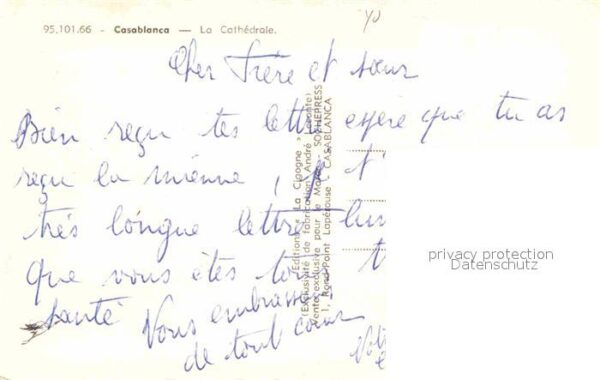 95.101.66 - Casablanca — La Cathédrale.
Cher Frère et sœur
Bien reçu tes lettre espère que tu as
reçu la mienne, je t'
très longue lettre
que vous êtes
santé Vous embrasse
de tout cœur
Editions « La Cigogne »
(Exclusivité de fabrication André
Vente exclusive pour le Maroc SOCHEPRESS
1, Rond-Point Lapérouse - CASABLANCA
privacy protection
Datenschutz